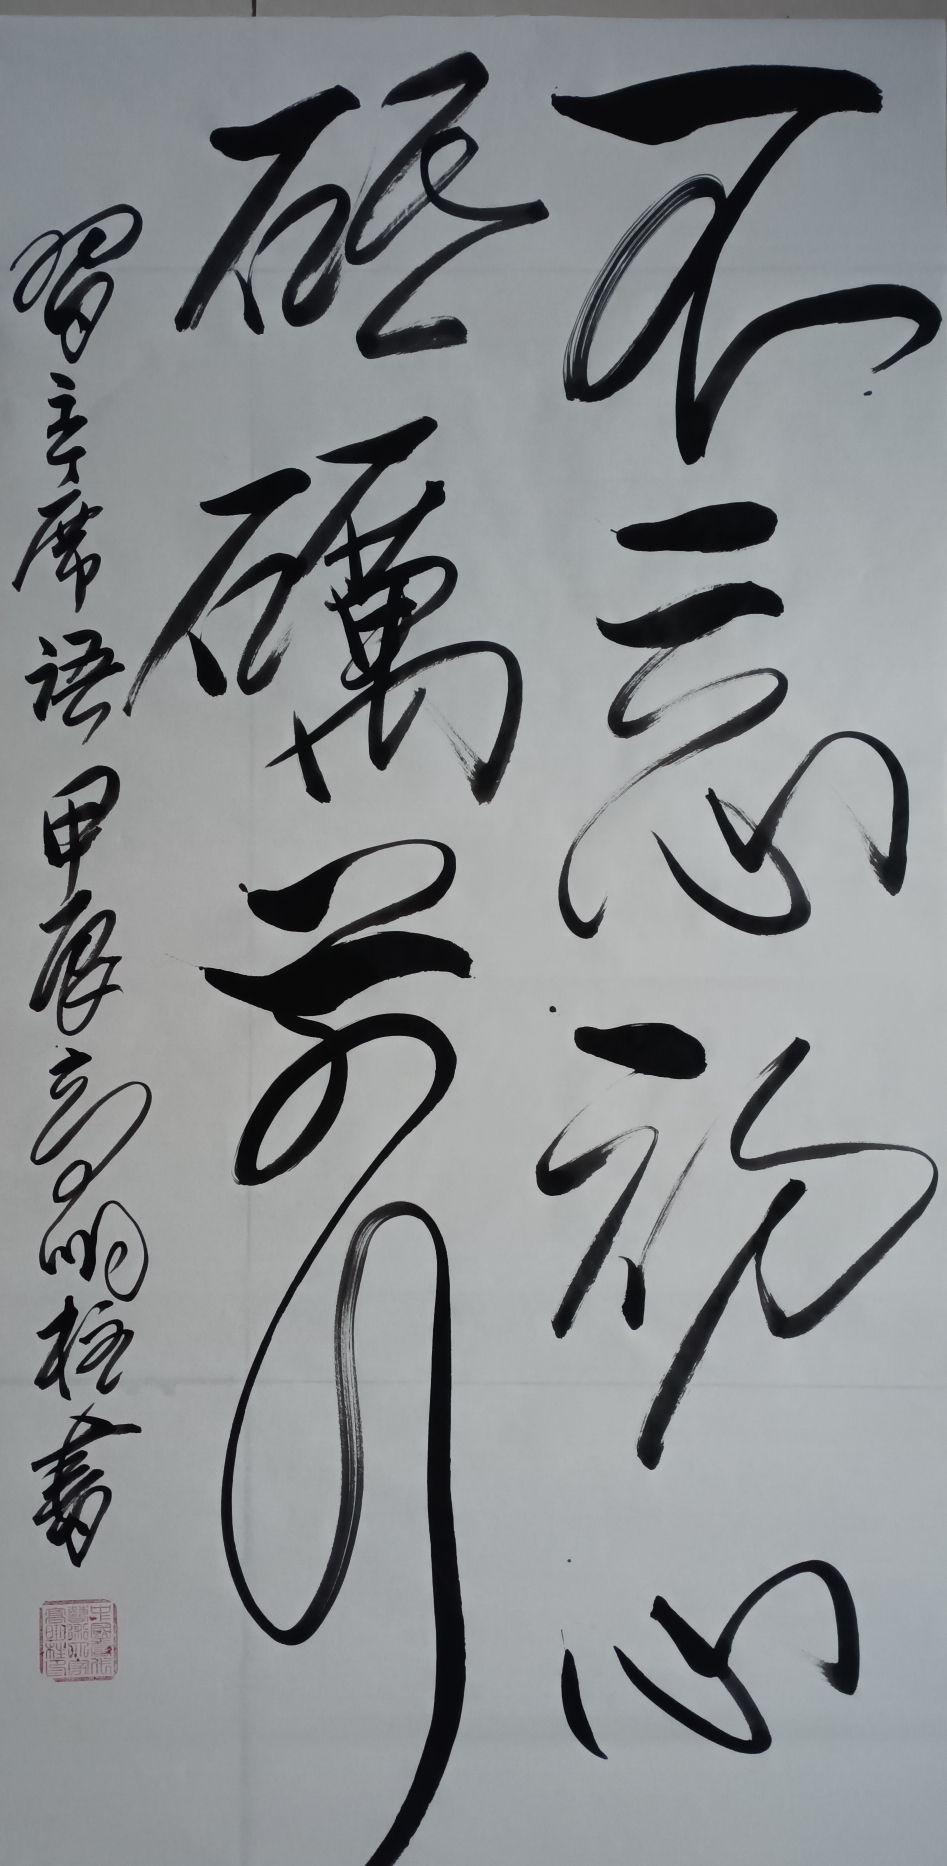 不忘初心
砥礪前行
習主席語甲辰高明柱書